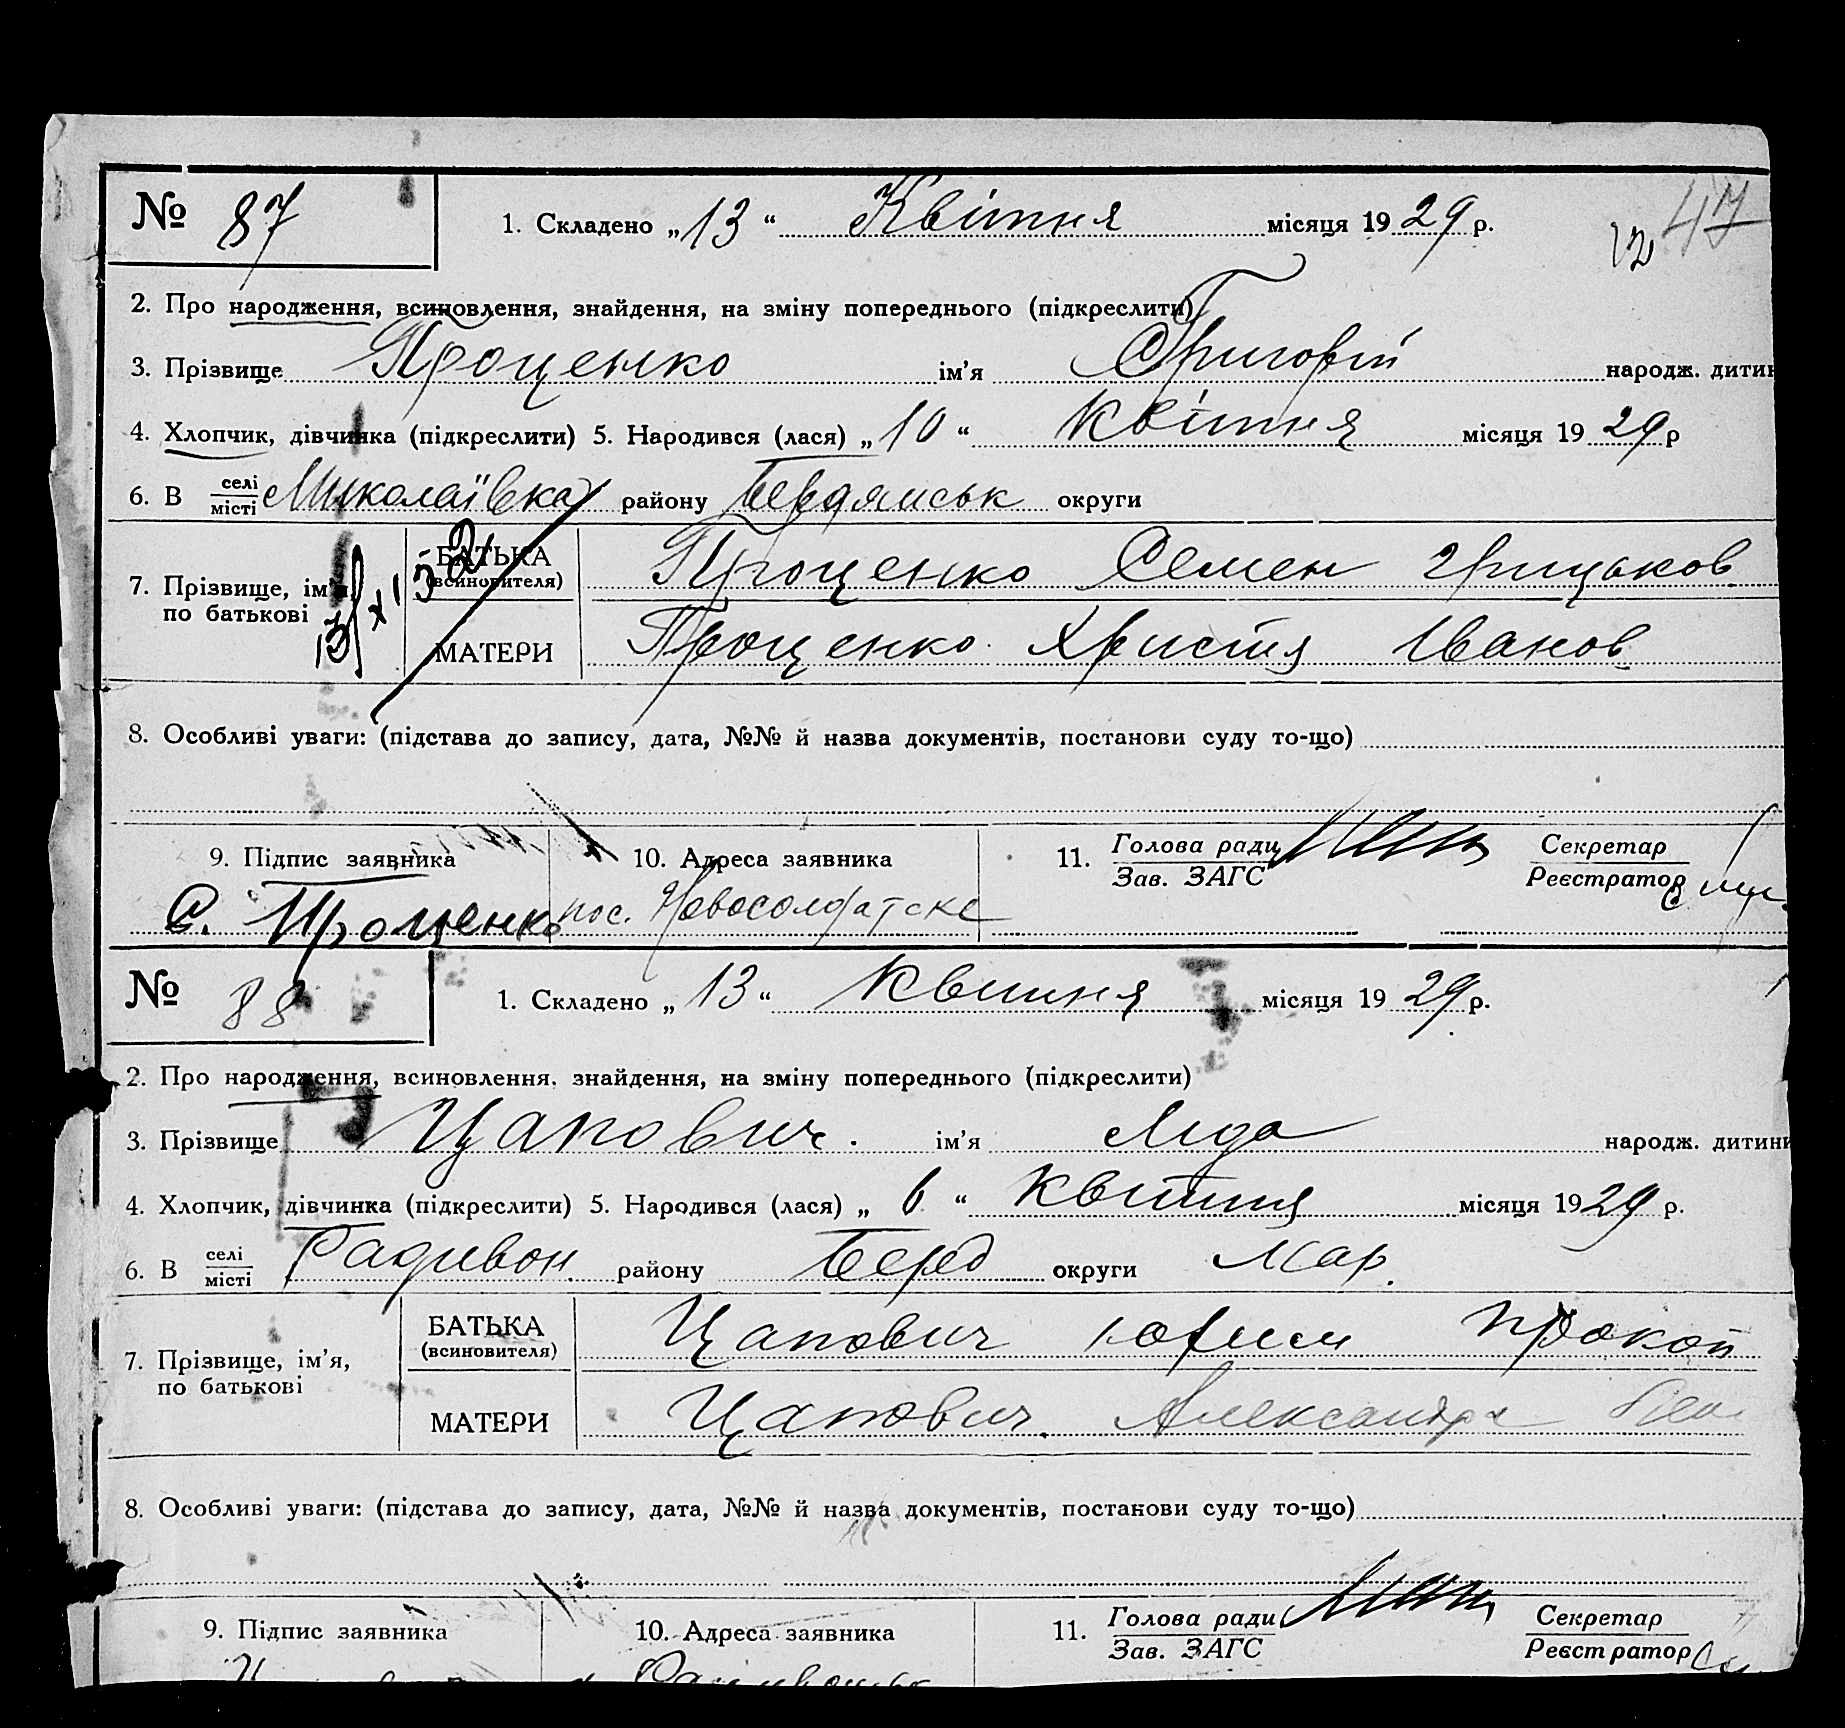 № 87 1. Складено „13“ Квітня місяця 1929 р.
12 47
2. Про народження, всиновлення, знайдення, на зміну попереднього (підкреслити)
3. Прізвище Проценко ім’я Григорій народж. дитин
4. Хлопчик, дівчинка (підкреслити) 5. Народився (лася) „10“ Квітня місяця 1929 р
6. В селі місті Миколаївка району Бердянськ округи
7. Прізвище, ім’я, по батькові
БАТЬКА (всиновителя) Проценко Семен Грицьков
МАТЕРИ Проценко Христя Іванов
8. Особливі уваги: (підстава до запису, дата, №№ й назва документів, постанови суду то-що)
9. Підпис заявника 10. Адреса заявника 11. Голова ради Зав. ЗАГС Секретар Реєстратор
С. Проценко пос. Новосолдатске
№ 88 1. Складено „13“ Квитня місяця 1929 р.
2. Про народження, всиновлення, знайдення, на зміну попереднього (підкреслити)
3. Прізвище Цапович. ім’я Лида народж. дитини
4. Хлопчик, дівчинка (підкреслити) 5. Народився (лася) „6“ Квитня місяця 1929 р.
6. В селі місті Радивон. району Берд округи Мар.
7. Прізвище, ім’я, по батькові
БАТЬКА (всиновителя) Цапович Юхим Прокоп
МАТЕРИ Цапович. Александра
8. Особливі уваги: (підстава до запису, дата, №№ й назва документів, постанови суду то-що)
9. Підпис заявника 10. Адреса заявника 11. Голова ради Зав. ЗАГС Секретар Реєстратор